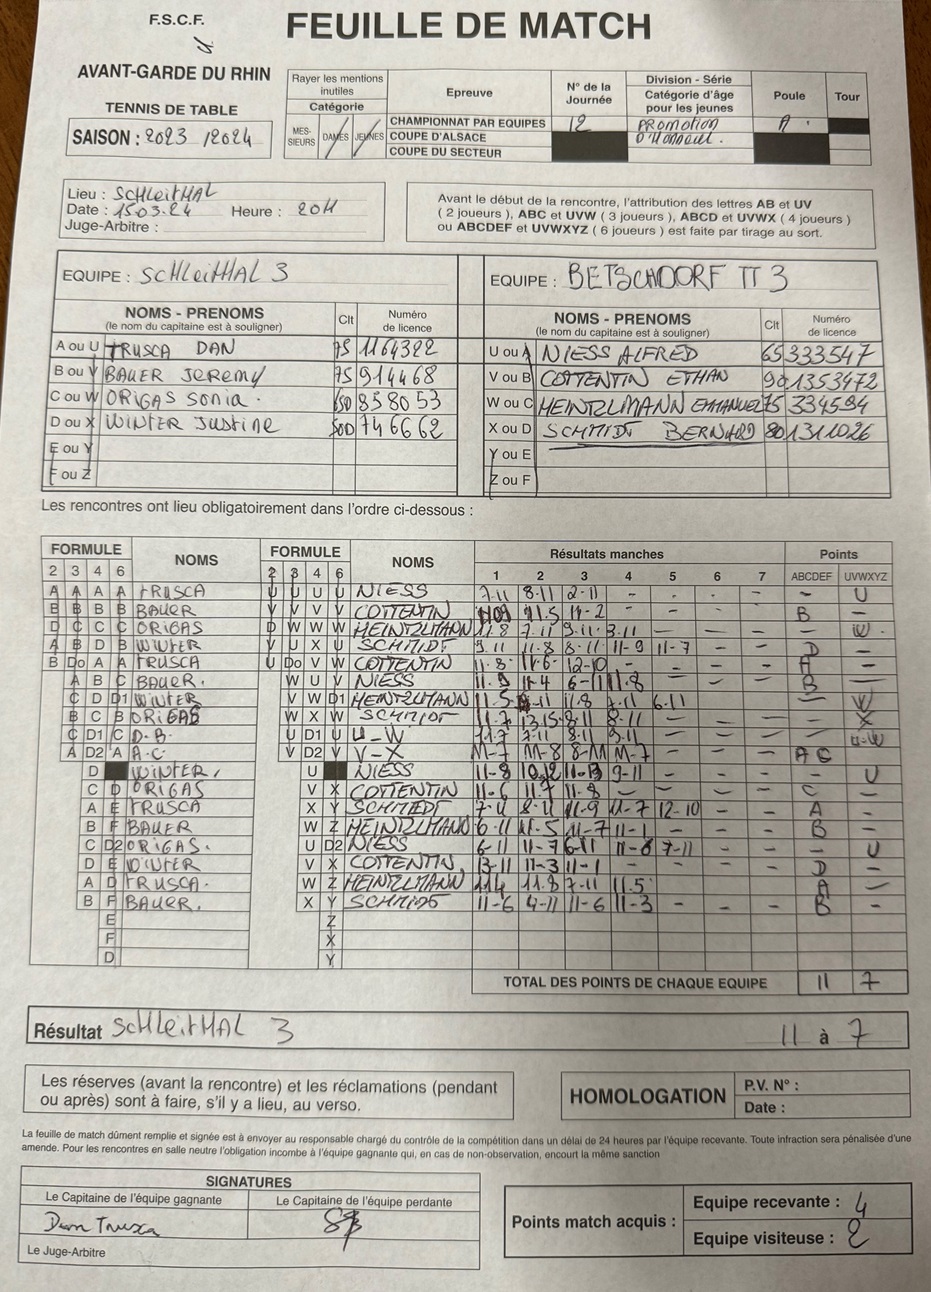 F.S.C.F.
FEUILLE DE MATCH
AVANT-GARDE DU RHIN
TENNIS DE TABLE
SAISON : 2023 /2024
Rayer les mentions inutiles
Catégorie
MES-SIEURS DAMES JEUNES
Epreuve
N° de la Journée
Division - Série
Catégorie d'âge pour les jeunes
Poule
Tour
CHAMPIONNAT PAR EQUIPES 12 PROMOTION D'Honneur. A
COUPE D'ALSACE
COUPE DU SECTEUR
Lieu : SCHLEITHAL
Date : 15.03.24 Heure : 20H
Juge-Arbitre :
Avant le début de la rencontre, l'attribution des lettres AB et UV
( 2 joueurs ), ABC et UVW ( 3 joueurs ), ABCD et UVWX ( 4 joueurs )
ou ABCDEF et UVWXYZ ( 6 joueurs ) est faite par tirage au sort.
EQUIPE : SCHLEITHAL 3
EQUIPE : BETSCHDORF TT 3
NOMS - PRENOMS
(le nom du capitaine est à souligner)
Clt
Numéro de licence
NOMS - PRENOMS
(le nom du capitaine est à souligner)
Clt
Numéro de licence
A ou U TRUSCA DAN 75 1164322
U ou A NIESS ALFRED 65 333547
B ou V BAUER Jeremy 75 914468
V ou B COTTENTIN ETHAN 90 1353472
C ou W ORIGAS Sonia. 858053
W ou C HEINTZLMANN EMMANUEL 75 334594
D ou X WINTER Justine 500 746662
X ou D SCHMIDT BERNHARD 80 1311026
E ou Y
Y ou E
F ou Z
Z ou F
Les rencontres ont lieu obligatoirement dans l'ordre ci-dessous :
FORMULE NOMS FORMULE NOMS Résultats manches Points
2 3 4 6 2 3 4 6 1 2 3 4 5 6 7 ABCDEF UVWXYZ
A A A A TRUSCA U U U U NIESS 7-11 8-11 2-11 - - - - - U
B B B B BAUER V V V V COTTENTIN 11.5 11-2 - - - B -
D C C C ORIGAS D W W W HEINTZLMANN 11.8 7.11 9.11 3.11 - - - - W.
A B D B WINTER V U X U SCHMIDT 9.11 11-8 8-11 11-9 11-7 - - D -
B Do A A TRUSCA U Do V W COTTENTIN 11-8 11-6 12-10 - - - - A -
A B C BAUER. W U V NIESS 11-9 11-4 6-11 11.8 - - - B -
C D D1 WINTER V W D1 HEINTZLMANN 11.5 11.8 7-11 6-11 - - - W
B C B ORIGAS W X W SCHMIDT 11-7 13.15 8-11 8-11 - - - - X
C D1 C D-B U D1 U U-W 11.7 7-11 8-11 9-11 - - - U-W
A D2 A A-C V D2 V V-X 11-7 11-8 8-11 11-7 - - - A C -
D WINTER, U NIESS 11-8 10.12 9-11 - - - - U
C D ORIGAS V X COTTENTIN 11-6 11.7 11-8 - - - - C -
A E TRUSCA X Y SCHMIDT 11-9 11-7 12-10 - - A -
B F BAUER W Z HEINTZLMANN 6-11 11-5 11-7 11-1 - - - B -
C D2 ORIGAS. U D2 NIESS 6-11 11-7 6-11 11-8 7-11 - - - U
D E WINTER V X COTTENTIN 13-11 11-3 11-1 - - - - D -
A D TRUSCA. W Z HEINTZLMANN 11.4 11.8 7-11 11.5 A -
B F BAUER. X Y SCHMIDT 11-6 4-11 11-6 11-3 - - - B -
E Z
F X
D Y
TOTAL DES POINTS DE CHAQUE EQUIPE 11 7
Résultat SCHLEITHAL 3 11 à 7
Les réserves (avant la rencontre) et les réclamations (pendant
ou après) sont à faire, s'il y a lieu, au verso.
HOMOLOGATION
P.V. N° :
Date :
La feuille de match dûment remplie et signée est à envoyer au responsable chargé du contrôle de la compétition dans un délai de 24 heures par l'équipe recevante. Toute infraction sera pénalisée d'une
amende. Pour les rencontres en salle neutre l'obligation incombe à l'équipe gagnante qui, en cas de non-observation, encourt la même sanction
SIGNATURES
Le Capitaine de l'équipe gagnante
Le Capitaine de l'équipe perdante
Dan Trusca
Le Juge-Arbitre
Points match acquis :
Equipe recevante : 4
Equipe visiteuse : 2